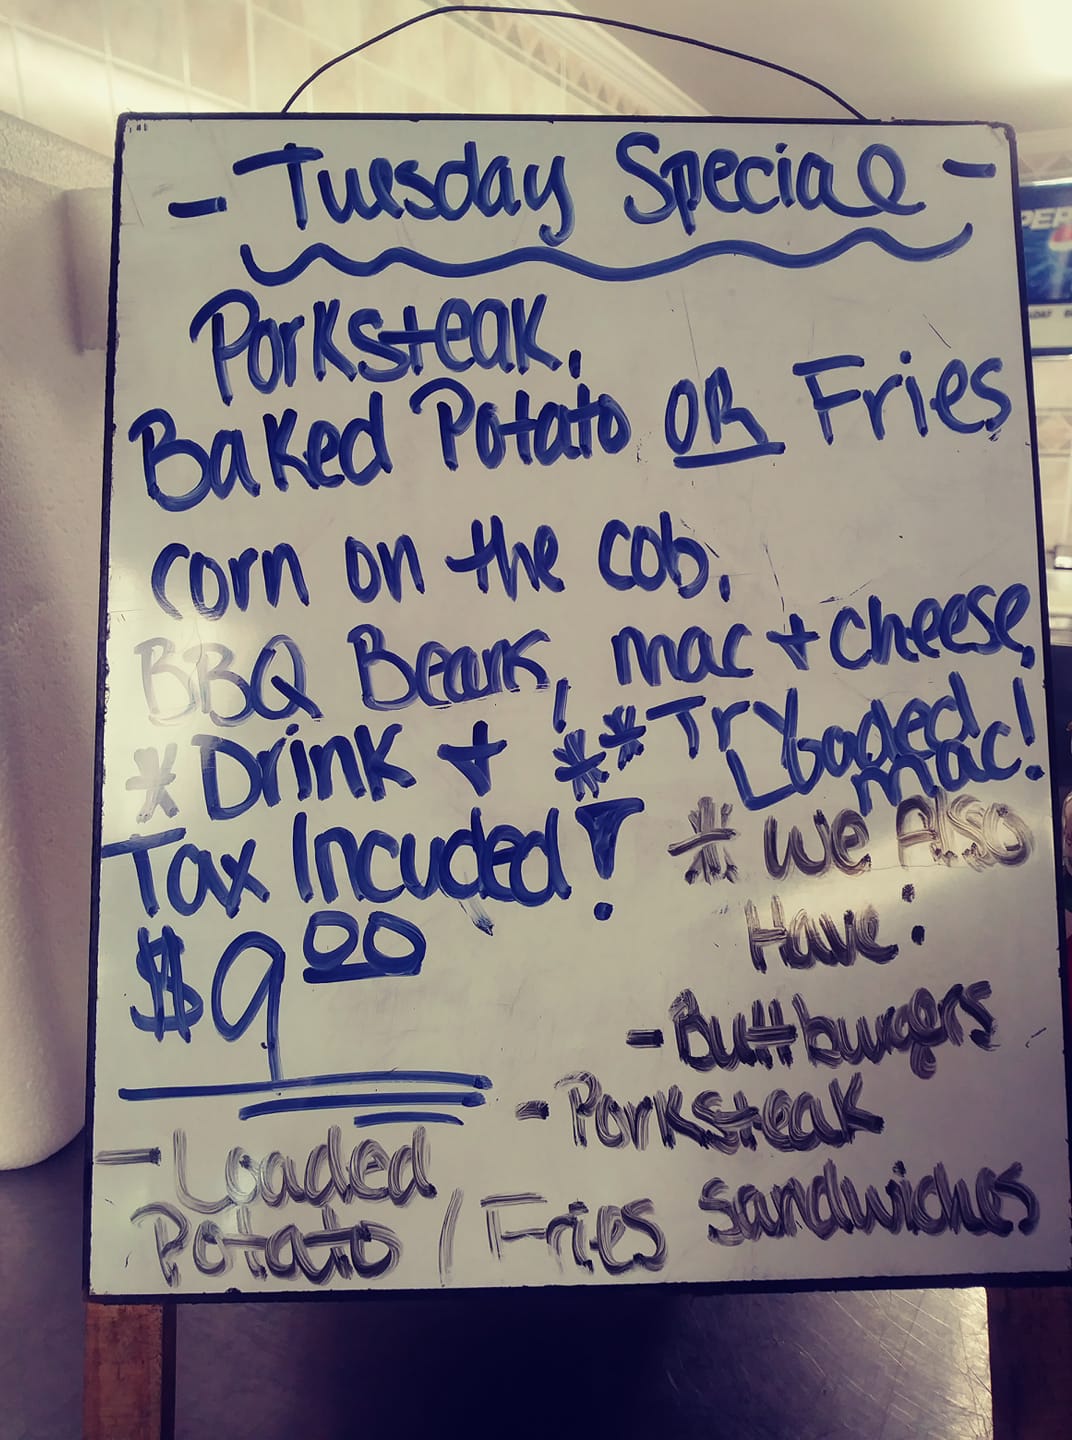 - Tuesday Special -
Porksteak,
Baked Potato OR Fries
corn on the cob,
BBQ Beans, mac + cheese,
*Drink + ** Try Loaded mac!
Tax Incuded!
$9.00
* We Also
Have:
- Buttburgers
- Porksteak
sandwiches
- Loaded
Potato / Fries